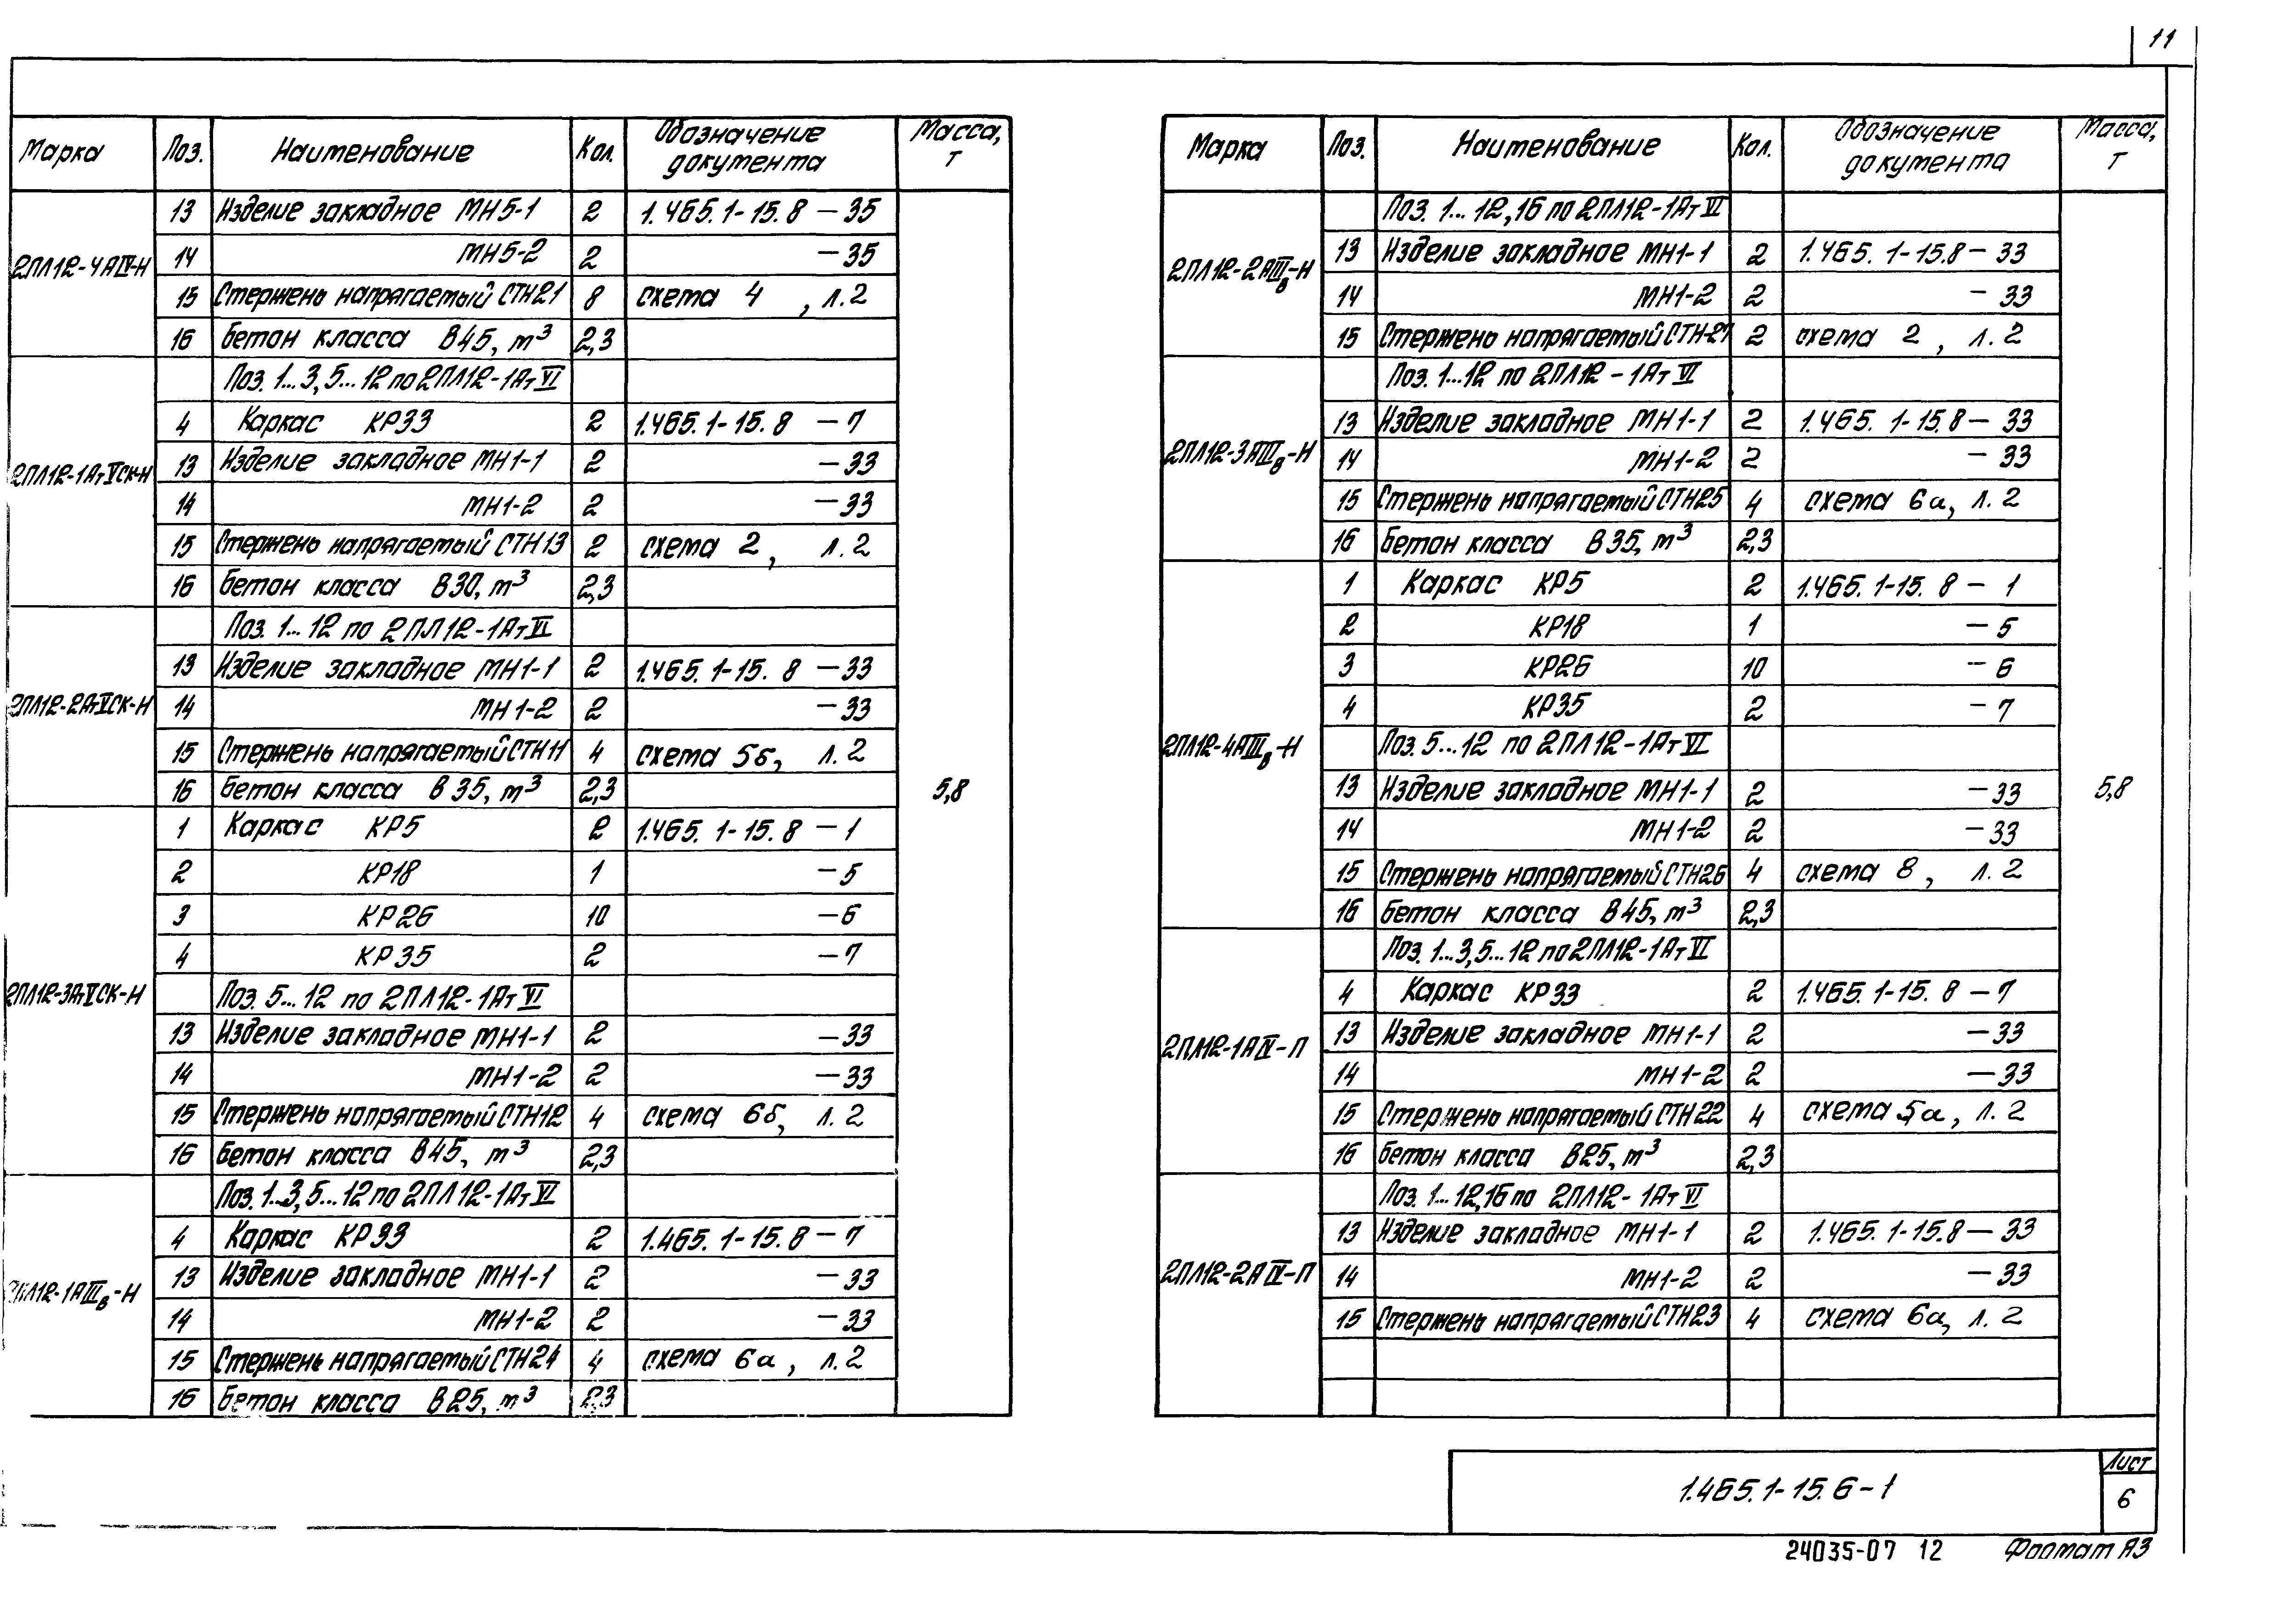 11
Марка Поз. Наименование Кол. Обозначение документа Масса, т
2ПЛ12-4АIV-Н
13 Изделие закладное МН5-1 2 1.465.1-15.8 — 35
14 МН5-2 2 — 35
15 Стержень напрягаемый СТН21 8 схема 4 , л.2
16 Бетон класса В45, м³ 2,3
2ПЛ12-1АтVСК-Н
Поз. 1...3, 5...12 по 2ПЛ12-1АтVI
4 Каркас КР33 2 1.465.1-15.8 — 7
13 Изделие закладное МН1-1 2 — 33
14 МН1-2 2 — 33
15 Стержень напрягаемый СТН13 2 схема 2, л.2
16 Бетон класса В30, м³ 2,3
2ПЛ12-2АтVСК-Н
Поз. 1...12 по 2ПЛ12-1АтVI
13 Изделие закладное МН1-1 2 1.465.1-15.8 — 33
14 МН1-2 2 — 33
15 Стержень напрягаемый СТН11 4 схема 5б, л.2
16 Бетон класса В35, м³ 2,3
5,8
2ПЛ12-3АтVСК-Н
1 Каркас КР5 2 1.465.1-15.8 — 1
2 КР18 1 — 5
3 КР26 10 — 6
4 КР35 2 — 7
Поз. 5...12 по 2ПЛ12-1АтVI
13 Изделие закладное МН1-1 2 — 33
14 МН1-2 2 — 33
15 Стержень напрягаемый СТН12 4 схема 6б, л.2
16 Бетон класса В45, м³ 2,3
2ПЛ12-1АIIIв-Н
Поз. 1...3, 5...12 по 2ПЛ12-1АтVI
4 Каркас КР33 2 1.465.1-15.8 — 7
13 Изделие закладное МН1-1 2 — 33
14 МН1-2 2 — 33
15 Стержень напрягаемый СТН24 4 схема 6а, л.2
16 Бетон класса В25, м³ 2,3
Марка Поз. Наименование Кол. Обозначение документа Масса, т
2ПЛ12-2АIIIв-Н
Поз. 1...12,16 по 2ПЛ12-1АтVI
13 Изделие закладное МН1-1 2 1.465.1-15.8 — 33
14 МН1-2 2 — 33
15 Стержень напрягаемый СТН27 2 схема 2, л.2
2ПЛ12-3АIIIв-Н
Поз. 1...12 по 2ПЛ12-1АтVI
13 Изделие закладное МН1-1 2 1.465.1-15.8 — 33
14 МН1-2 2 — 33
15 Стержень напрягаемый СТН25 4 схема 6а, л.2
16 Бетон класса В35, м³ 2,3
2ПЛ12-4АIIIв-Н
1 Каркас КР5 2 1.465.1-15.8 — 1
2 КР18 1 — 5
3 КР26 10 — 6
4 КР35 2 — 7
Поз. 5...12 по 2ПЛ12-1АтVI
13 Изделие закладное МН1-1 2 — 33
5,8
14 МН1-2 2 — 33
15 Стержень напрягаемый СТН26 4 схема 8, л.2
16 Бетон класса В45, м³ 2,3
2ПЛ12-1АIV-П
Поз. 1...3, 5...12 по 2ПЛ12-1АтVI
4 Каркас КР33 2 1.465.1-15.8 — 7
13 Изделие закладное МН1-1 2 — 33
14 МН1-2 2 — 33
15 Стержень напрягаемый СТН22 4 схема 5а, л.2
16 Бетон класса В25, м³ 2,3
2ПЛ12-2АIV-П
Поз. 1...12,16 по 2ПЛ12-1АтVI
13 Изделие закладное МН1-1 2 1.465.1-15.8 — 33
14 МН1-2 2 — 33
15 Стержень напрягаемый СТН23 4 схема 6а, л.2
1.465.1-15.6-1
Лист
6
24035-07 12 Формат А3